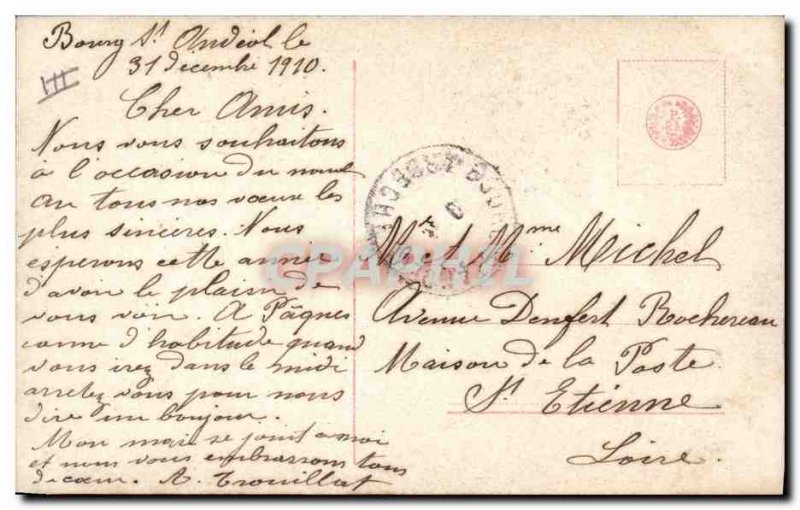 Bourg St Andéol le
31 décembre 1910.
III
Cher Amis.
Nous vous souhaitons
à l'occasion du nouvel
an tous nos voeux les
plus sincères. Nous
esperons cette année
d'avoir le plaisir de
vous voir. A Pâques
comme d'habitude quand
vous irez dans le midi
arretez vous pour nous
dire un bonjour.
Mon mari se joint a moi
et nous vous embrassons tous
de coeur. A. Trouillat
M et Mme Michel
Avenue Denfert Rochereau
Maison de la Poste
St Etienne
Loire.
CPAPHIL